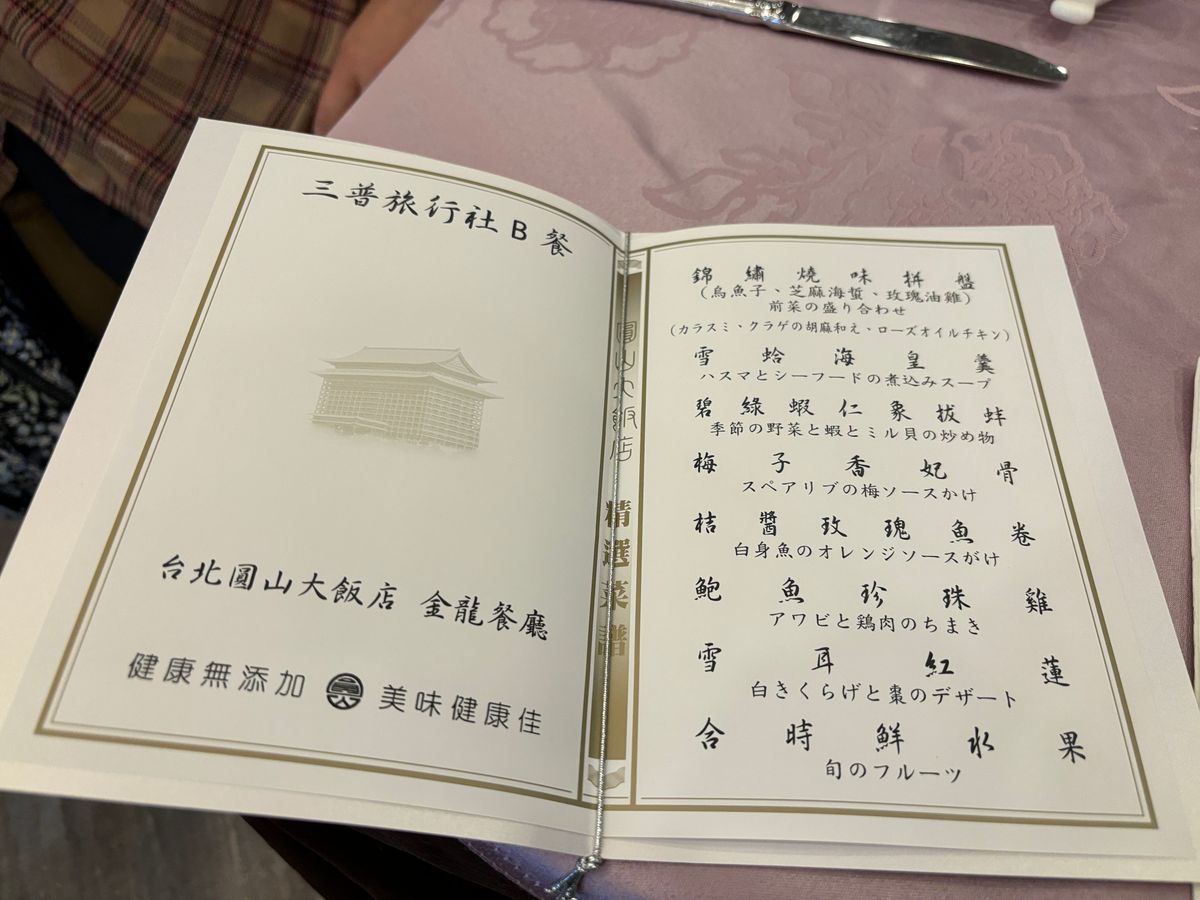 三普旅行社B餐
台北圓山大飯店 金龍餐廳
健康無添加 美味健康佳
圓山大飯店
精選菜譜
錦繡燒味拼盤
(烏魚子、芝麻海蜇、玫瑰油雞)
前菜の盛り合わせ
(カラスミ、クラゲの胡麻和え、ローズオイルチキン)
雪蛤海皇羹
ハスマとシーフードの煮込みスープ
碧綠蝦仁象拔蚌
季節の野菜と蝦とミル貝の炒め物
梅子香妃骨
スペアリブの梅ソースかけ
桔醬玫瑰魚卷
白身魚のオレンジソースがけ
鮑魚珍珠雞
アワビと鶏肉のちまき
雪耳紅蓮
白きくらげと棗のデザート
合時鮮水果
旬のフルーツ